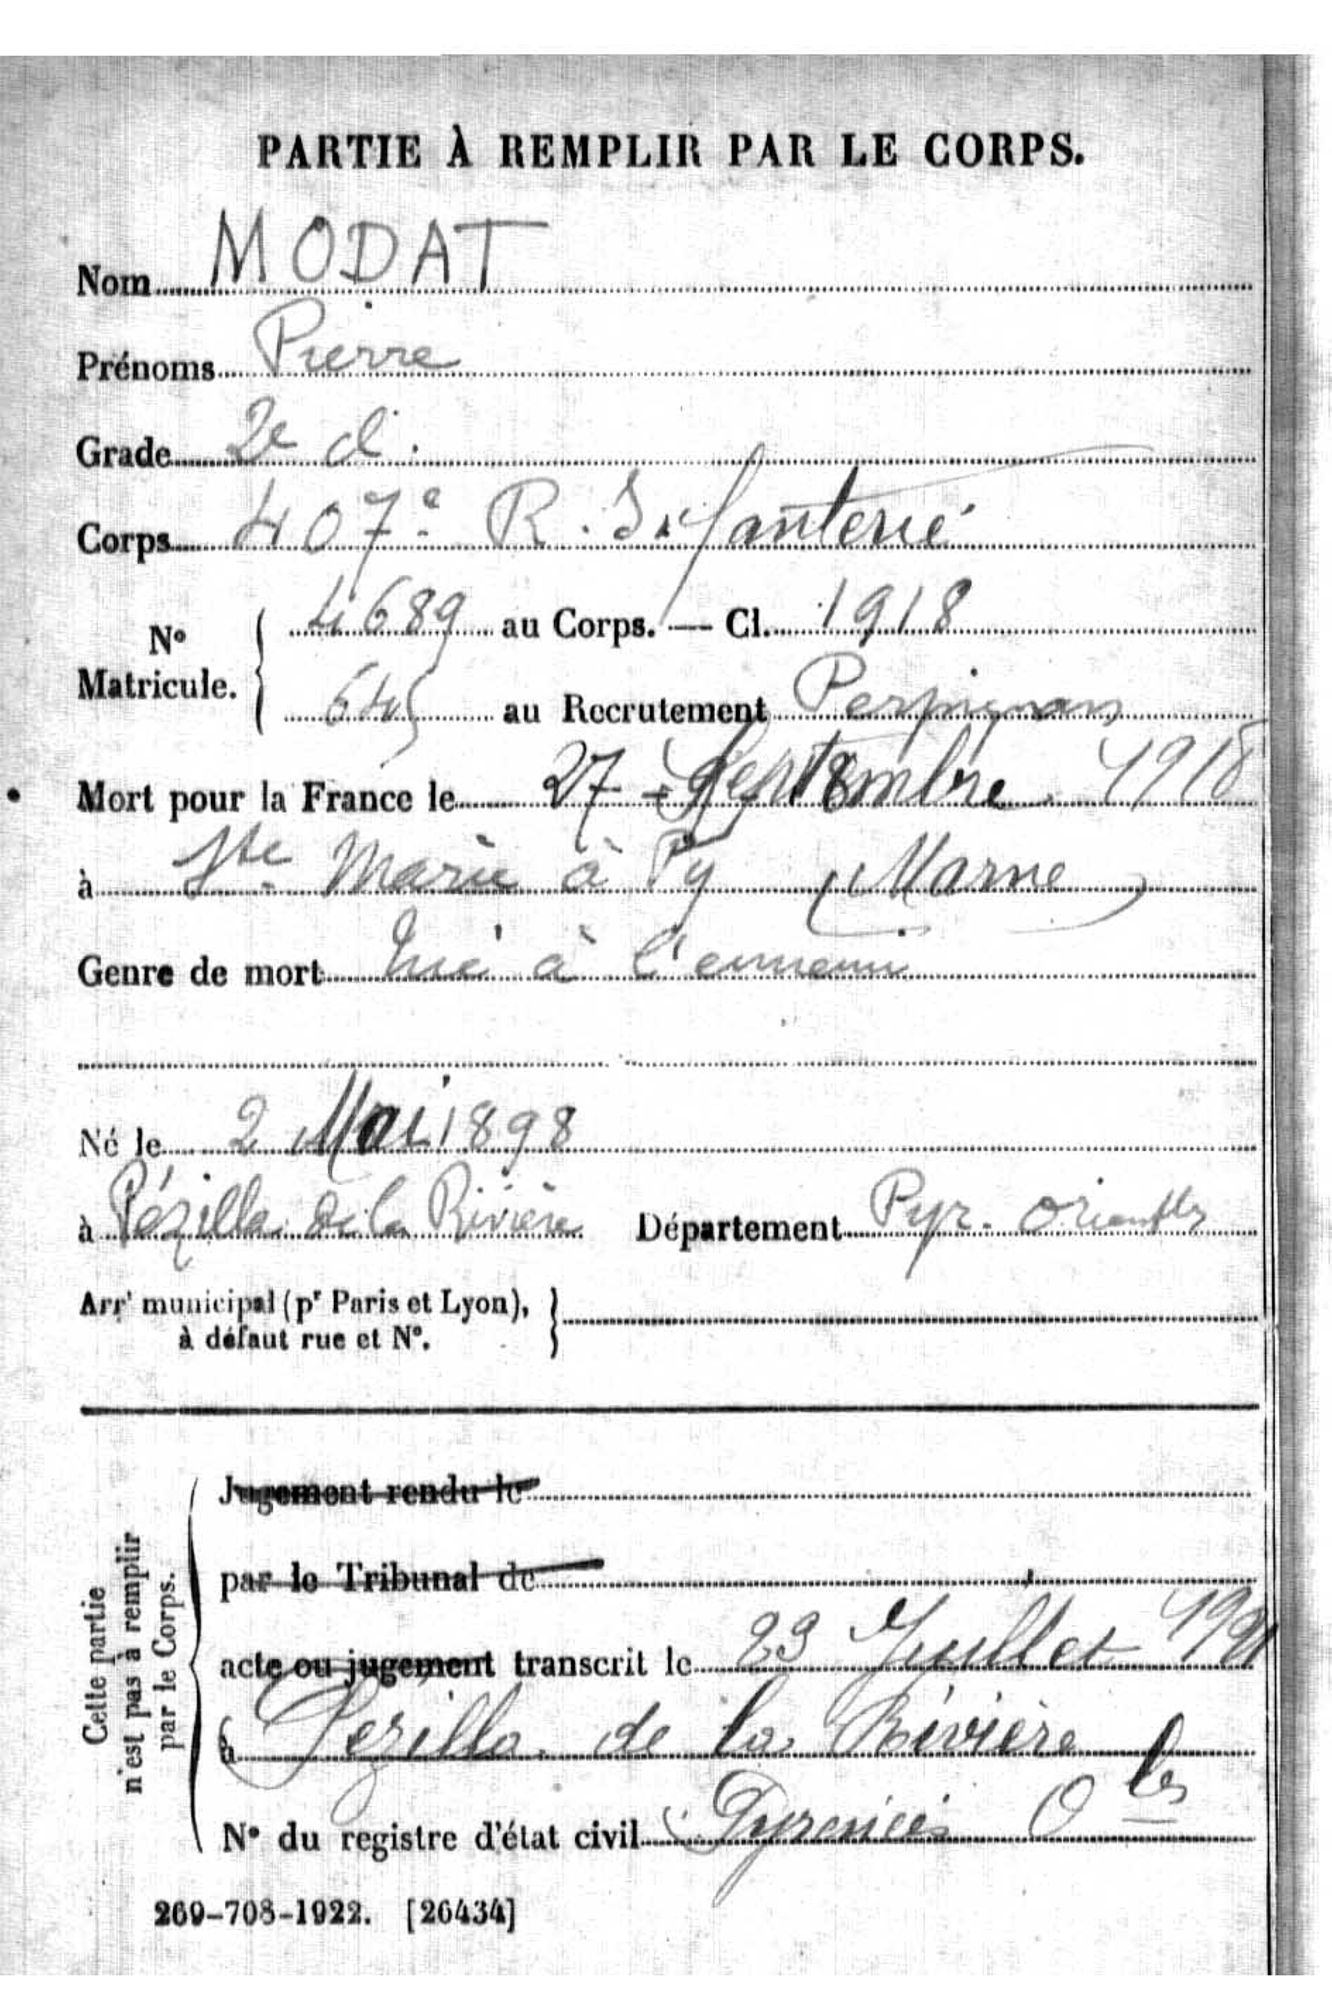 PARTIE À REMPLIR PAR LE CORPS.
Nom MODAT
Prénoms Pierre
Grade 2e cl.
Corps 407e R. Infanterie
No Matricule. 4689 au Corps. — Cl. 1918
645 au Recrutement Perpignan
Mort pour la France le 27 Septembre 1918
à Ste Marie à Py (Marne)
Genre de mort tué à l'ennemi
Né le 2 Mai 1898
à Pézilla de la Rivière Département Pyr. Orientles
Arrt municipal (pr Paris et Lyon),
à défaut rue et No.
Cette partie
n'est pas à remplir
par le Corps.
Jugement rendu le
par le Tribunal de
acte ou jugement transcrit le 29 Juillet 1921
à Pézilla de la Rivière
No du registre d'état civil (Pyrénées Oles
269-708-1922. [26434]